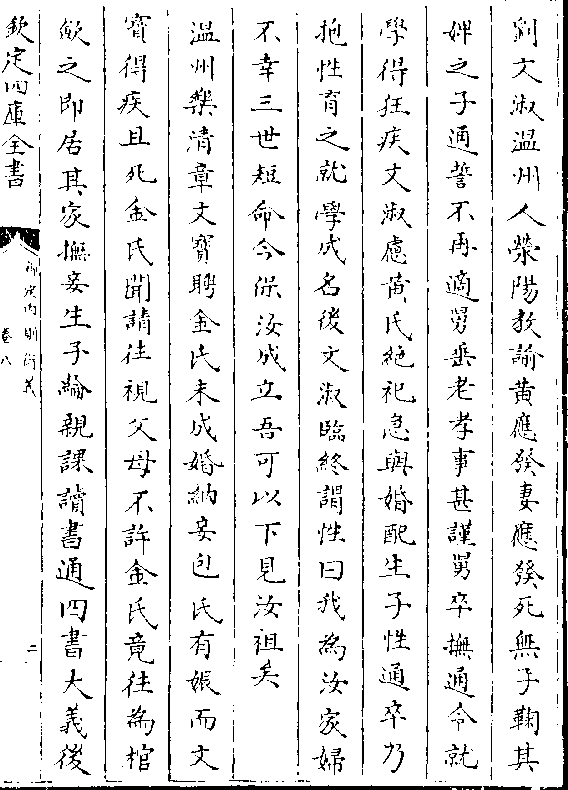 劉文淑温州人滎陽教諭黄應發妻應發死無子鞠其
婢之子通誓不再適舅垂老孝事甚謹舅卒撫通令就
學得狂疾文淑慮黄氏絶祀急與婚配生子性通卒乃
抱性育之就學成名後文淑臨終謂性曰我為汝家婦
不幸三世短命今保汝成立吾可以下見汝祖矣
温州樂清章文寳聘金氏未成婚納妾包氏有娠而文
寳得疾且死金氏聞請往視父母不許金氏竟往為棺
歛之即居其家撫妾生子綸親課讀書通四書大義後
欽定四庫全書
御定内則衍義
卷八
二